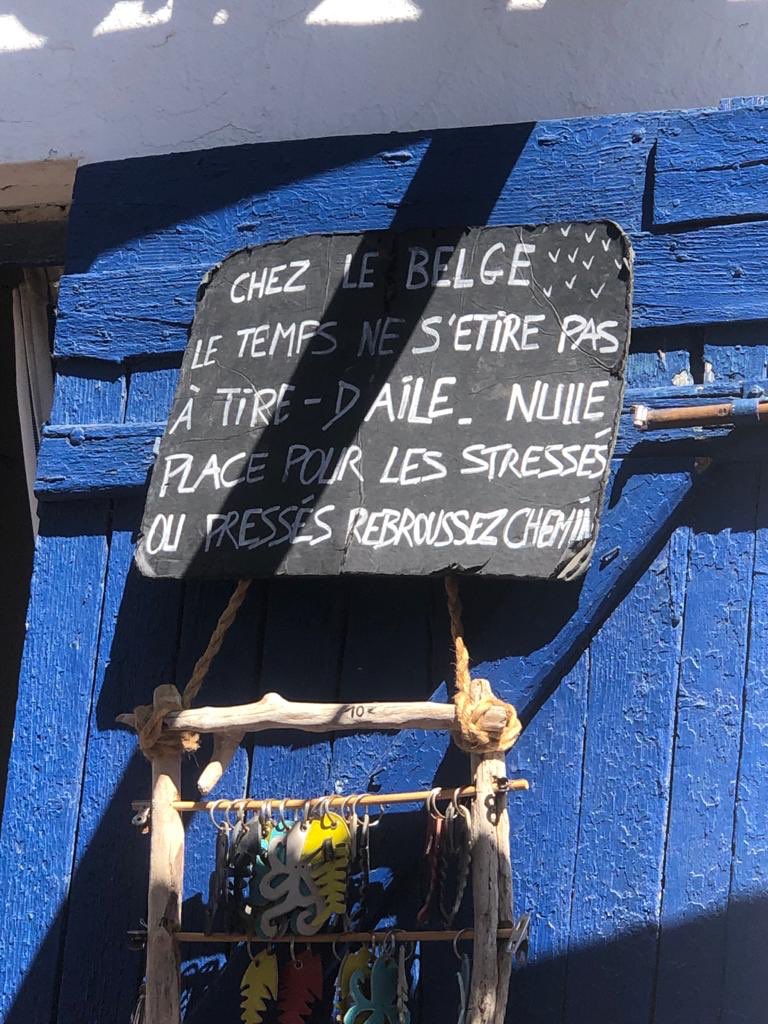 CHEZ LE BELGE
LE TEMPS NE S'ETIRE PAS
À TIRE-D'AILE_ NULLE
PLACE POUR LES STRESSÉS
OU PRESSÉS REBROUSSEZ CHEMIN
10€